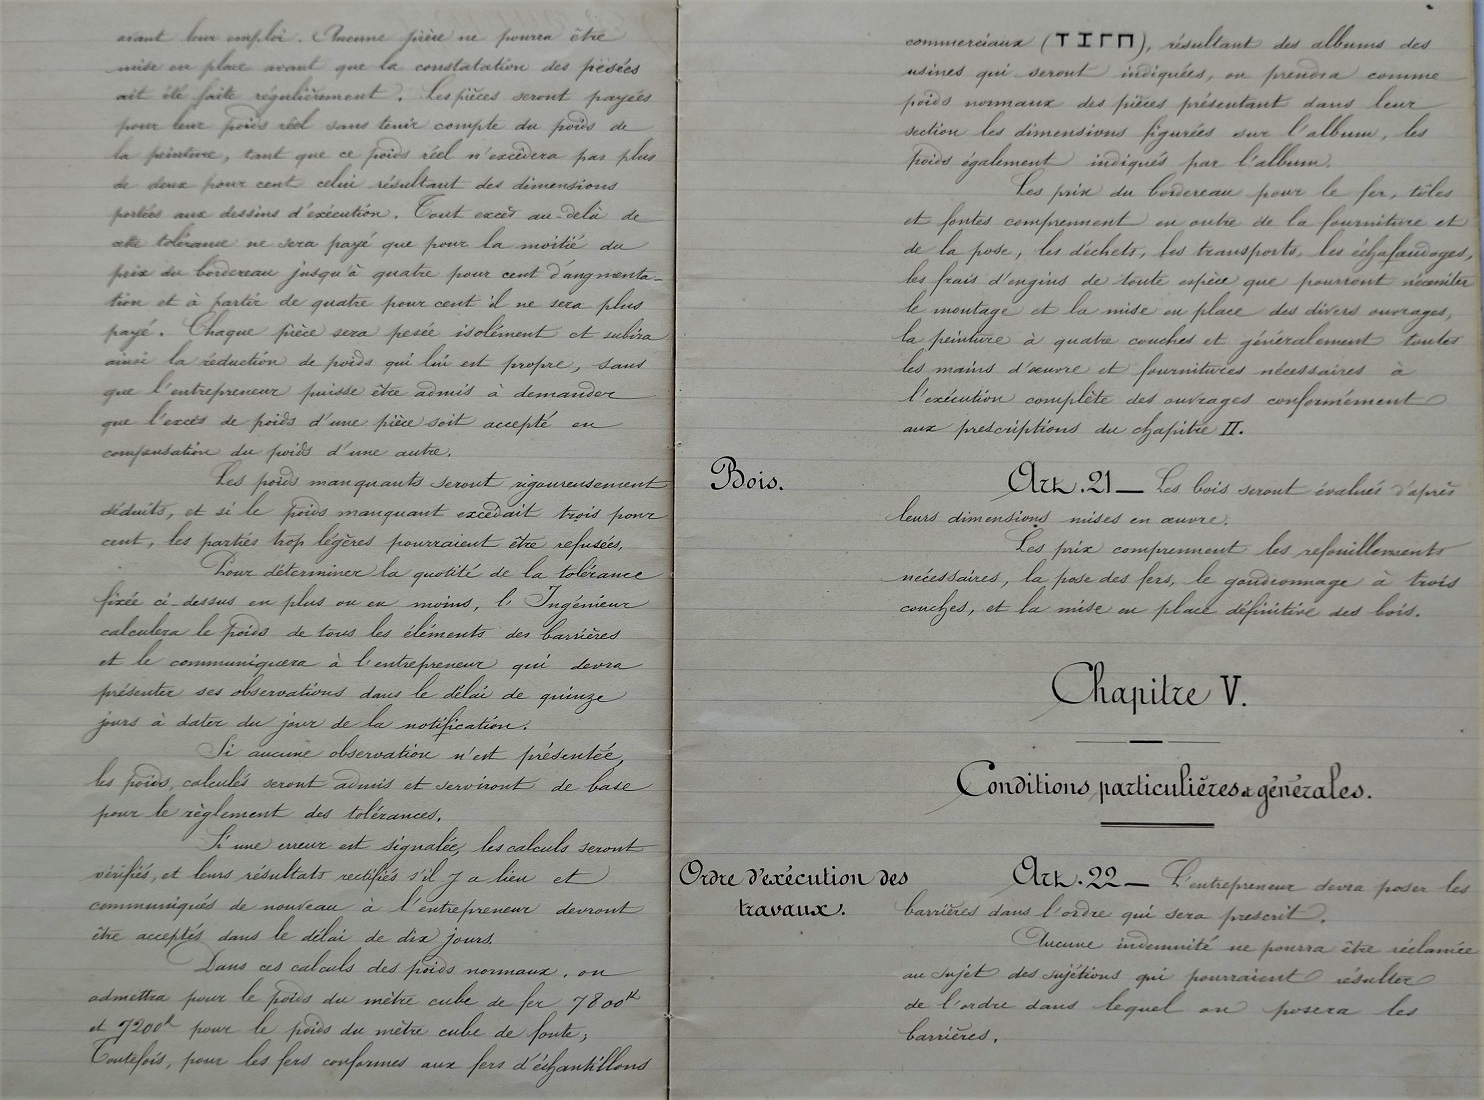 avant leur emploi. Aucune pièce ne pourra être
mise en place avant que la constatation des pesées
ait été faite régulièrement. Les pièces seront payées
pour leur poids réel sans tenir compte du poids de
la peinture, tant que ce poids réel n'excèdera pas plus
de deux pour cent celui résultant des dimensions
portées aux dessins d'exécution. Tout excès au-delà de
cette tolérance ne sera payé que pour la moitié du
prix du bordereau jusqu'à quatre pour cent d'augmenta-
tion et à partir de quatre pour cent il ne sera plus
payé. Chaque pièce sera pesée isolément et subira
ainsi la réduction de poids qui lui est propre, sans
que l'entrepreneur puisse être admis à demander
que l'excès de poids d'une pièce soit accepté en
compensation du poids d'une autre.
Les poids manquants seront rigoureusement
déduits, et si le poids manquant excédait trois pour
cent, les parties trop légères pourraient être refusées.
Pour déterminer la quotité de la tolérance
fixée ci-dessus en plus ou en moins, l'Ingénieur
calculera le poids de tous les éléments des barrières
et le communiquera à l'entrepreneur qui devra
présenter ses observations dans le délai de quinze
jours à dater du jour de la notification.
Si aucune observation n'est présentée,
les poids, calculés seront admis et serviront de base
pour le règlement des tolérances.
Si une erreur est signalée, les calculs seront
vérifiés, et leurs résultats rectifiés s'il y a lieu et
communiqués de nouveau à l'entrepreneur devront
être acceptés dans le délai de dix jours.
Dans ces calculs des poids normaux, on
admettra pour le poids du mètre cube de fer 7800k
et 7200k pour le poids du mètre cube de fonte;
Toutefois, pour les fers conformes aux fers d'échantillons
commerciaux (T I Γ Π), résultant des albums des
usines qui seront indiquées, on prendra comme
poids normaux des pièces présentant dans leur
section les dimensions figurées sur l'album, les
poids également indiqués par l'album.
Les prix du bordereau pour le fer, tôles
et fontes comprennent en outre de la fourniture et
de la pose, les déchets, les transports, les échafaudages,
les frais d'engins de toute espèce que pourront nécessiter
le montage et la mise en place des divers ouvrages,
la peinture à quatre couches et généralement toutes
les mains d'œuvre et fournitures nécessaires à
l'exécution complète des ouvrages conformément
aux prescriptions du chapitre II.
Bois.
Art. 21 — Les bois seront évalués d'après
leurs dimensions mises en œuvre.
Les prix comprennent les refouillements
nécessaires, la pose des fers, le goudronnage à trois
couches, et la mise en place définitive des bois.
Chapitre V.
Conditions particulières & générales.
Ordre d'exécution des
travaux.
Art. 22 — L'entrepreneur devra poser les
barrières dans l'ordre qui sera prescrit.
Aucune indemnité ne pourra être réclamée
au sujet des sujétions qui pourraient résulter
de l'ordre dans lequel on posera les
barrières.